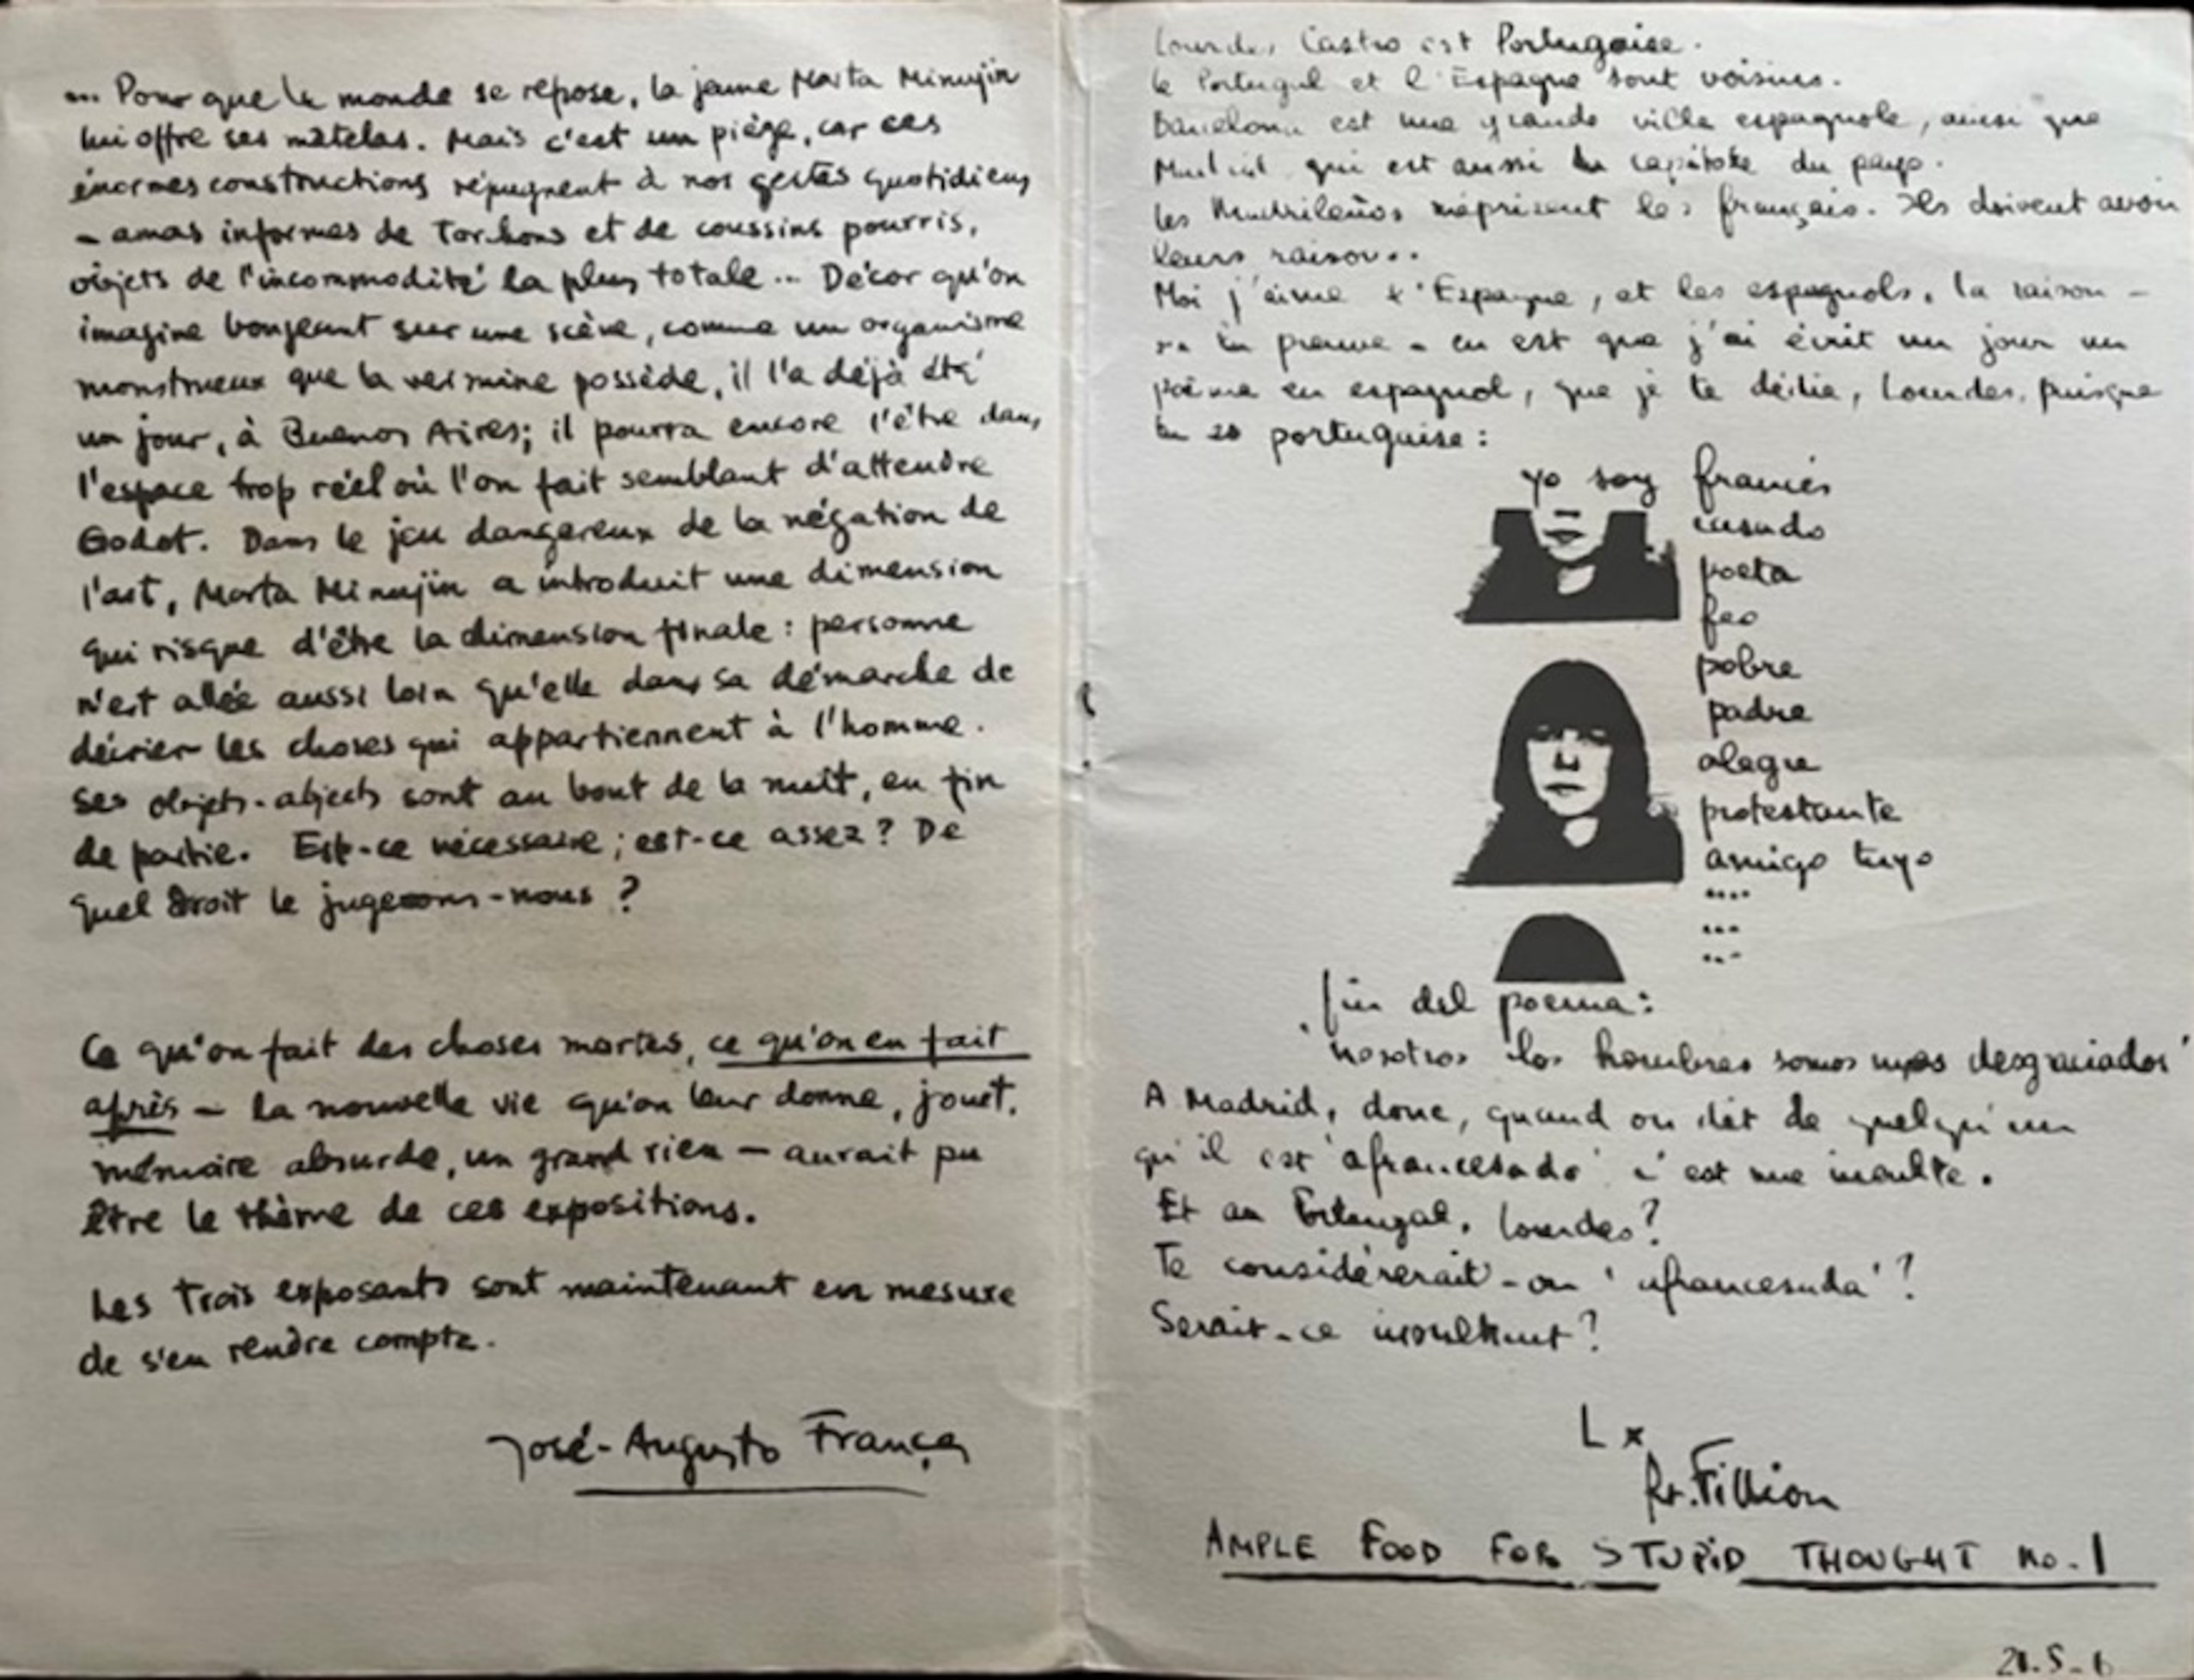 ... Pour que le monde se repose, la jeune Marta Minujin
lui offre ses matelas. Mais c'est un piège, car ces
énormes constructions répugnent à nos gestes quotidiens
– amas informes de torchons et de coussins pourris,
objets de l'incommodité la plus totale... Décor qu'on
imagine bougeant sur une scène, comme un organisme
monstrueux que la vermine possède, il l'a déjà été
un jour, à Buenos Aires; il pourra encore l'être dans
l'espace trop réel où l'on fait semblant d'attendre
Godot. Dans le jeu dangereux de la négation de
l'art, Marta Minujin a introduit une dimension
qui risque d'être la dimension finale : personne
n'est allée aussi loin qu'elle dans sa démarche de
décrier les choses qui appartiennent à l'homme.
Ses objets-abjects sont au bout de la nuit, en fin
de partie. Est-ce nécessaire ; est-ce assez ? De
quel droit le jugerons-nous ?
Ce qu'on fait des choses mortes, ce qu'on en fait
après – la nouvelle vie qu'on leur donne, jouet,
mémoire absurde, un grand rien – aurait pu
être le thème de ces expositions.
Les trois exposants sont maintenant en mesure
de s'en rendre compte.
José-Augusto França
Lourdes Castro est Portugaise.
le Portugal et l'Espagne sont voisins.
Barcelona est une grande ville espagnole, ainsi que
Madrid qui est aussi la capitale du pays.
les Madrileños méprisent les français. Ils doivent avoir
leurs raisons.
Moi j'aime l'Espagne, et les espagnols, la raison –
la preuve – en est que j'ai écrit un jour un
poème en espagnol, que je te dédie, Lourdes, puisque
tu es portuguise :
yo soy francés
casado
poeta
feo
pobre
padre
alegre
protestante
amigo tuyo
....
...
...
fin del poema :
'nosotros los hombres somos muy desgraciados'
A Madrid, donc, quand on dit de quelqu'un
qu'il est 'afrancesado' c'est une insulte.
Et au Portugal, Lourdes ?
Te considérerait-on 'afrancesada' ?
Serait-ce insultant ?
L x
Rt. Fillion
AMPLE FOOD FOR STUPID THOUGHT No. 1